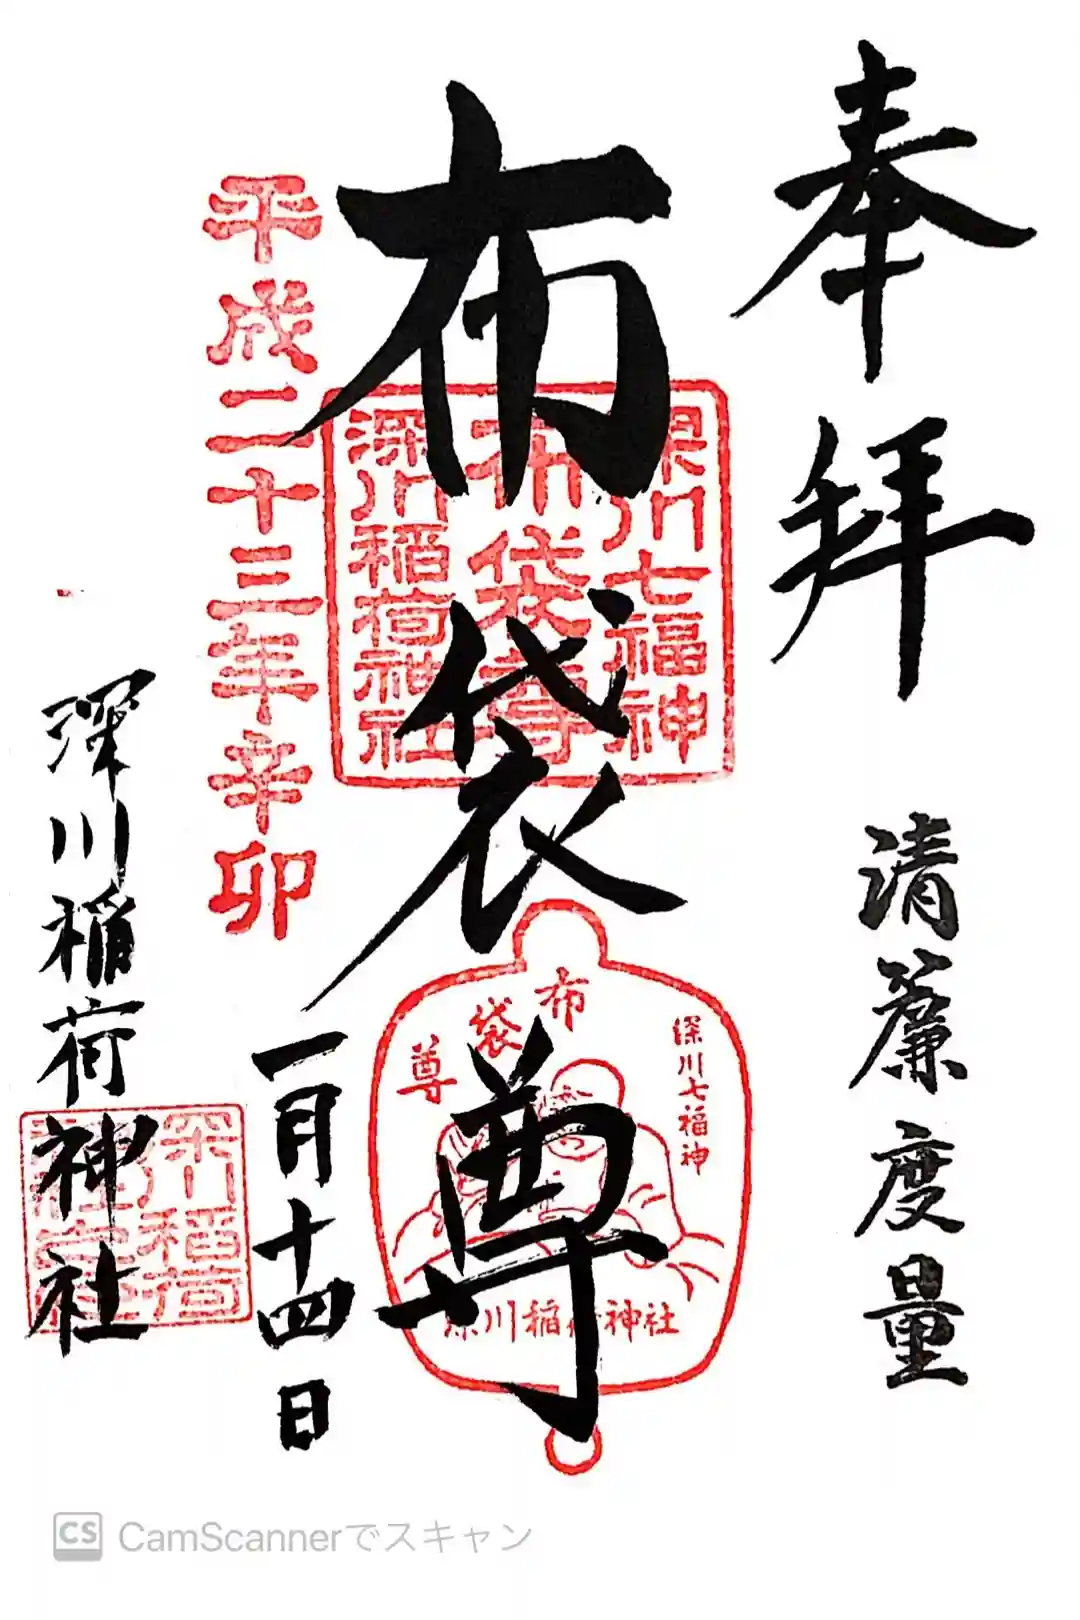 奉拝
清簾度量
布袋尊
深川七福神
布袋尊
深川稲荷神社
布袋尊
深川七福神
深川稲荷神社
平成二十三年辛卯
一月十四日
深川稲荷神社
深川稲荷
CS CamScannerでスキャン